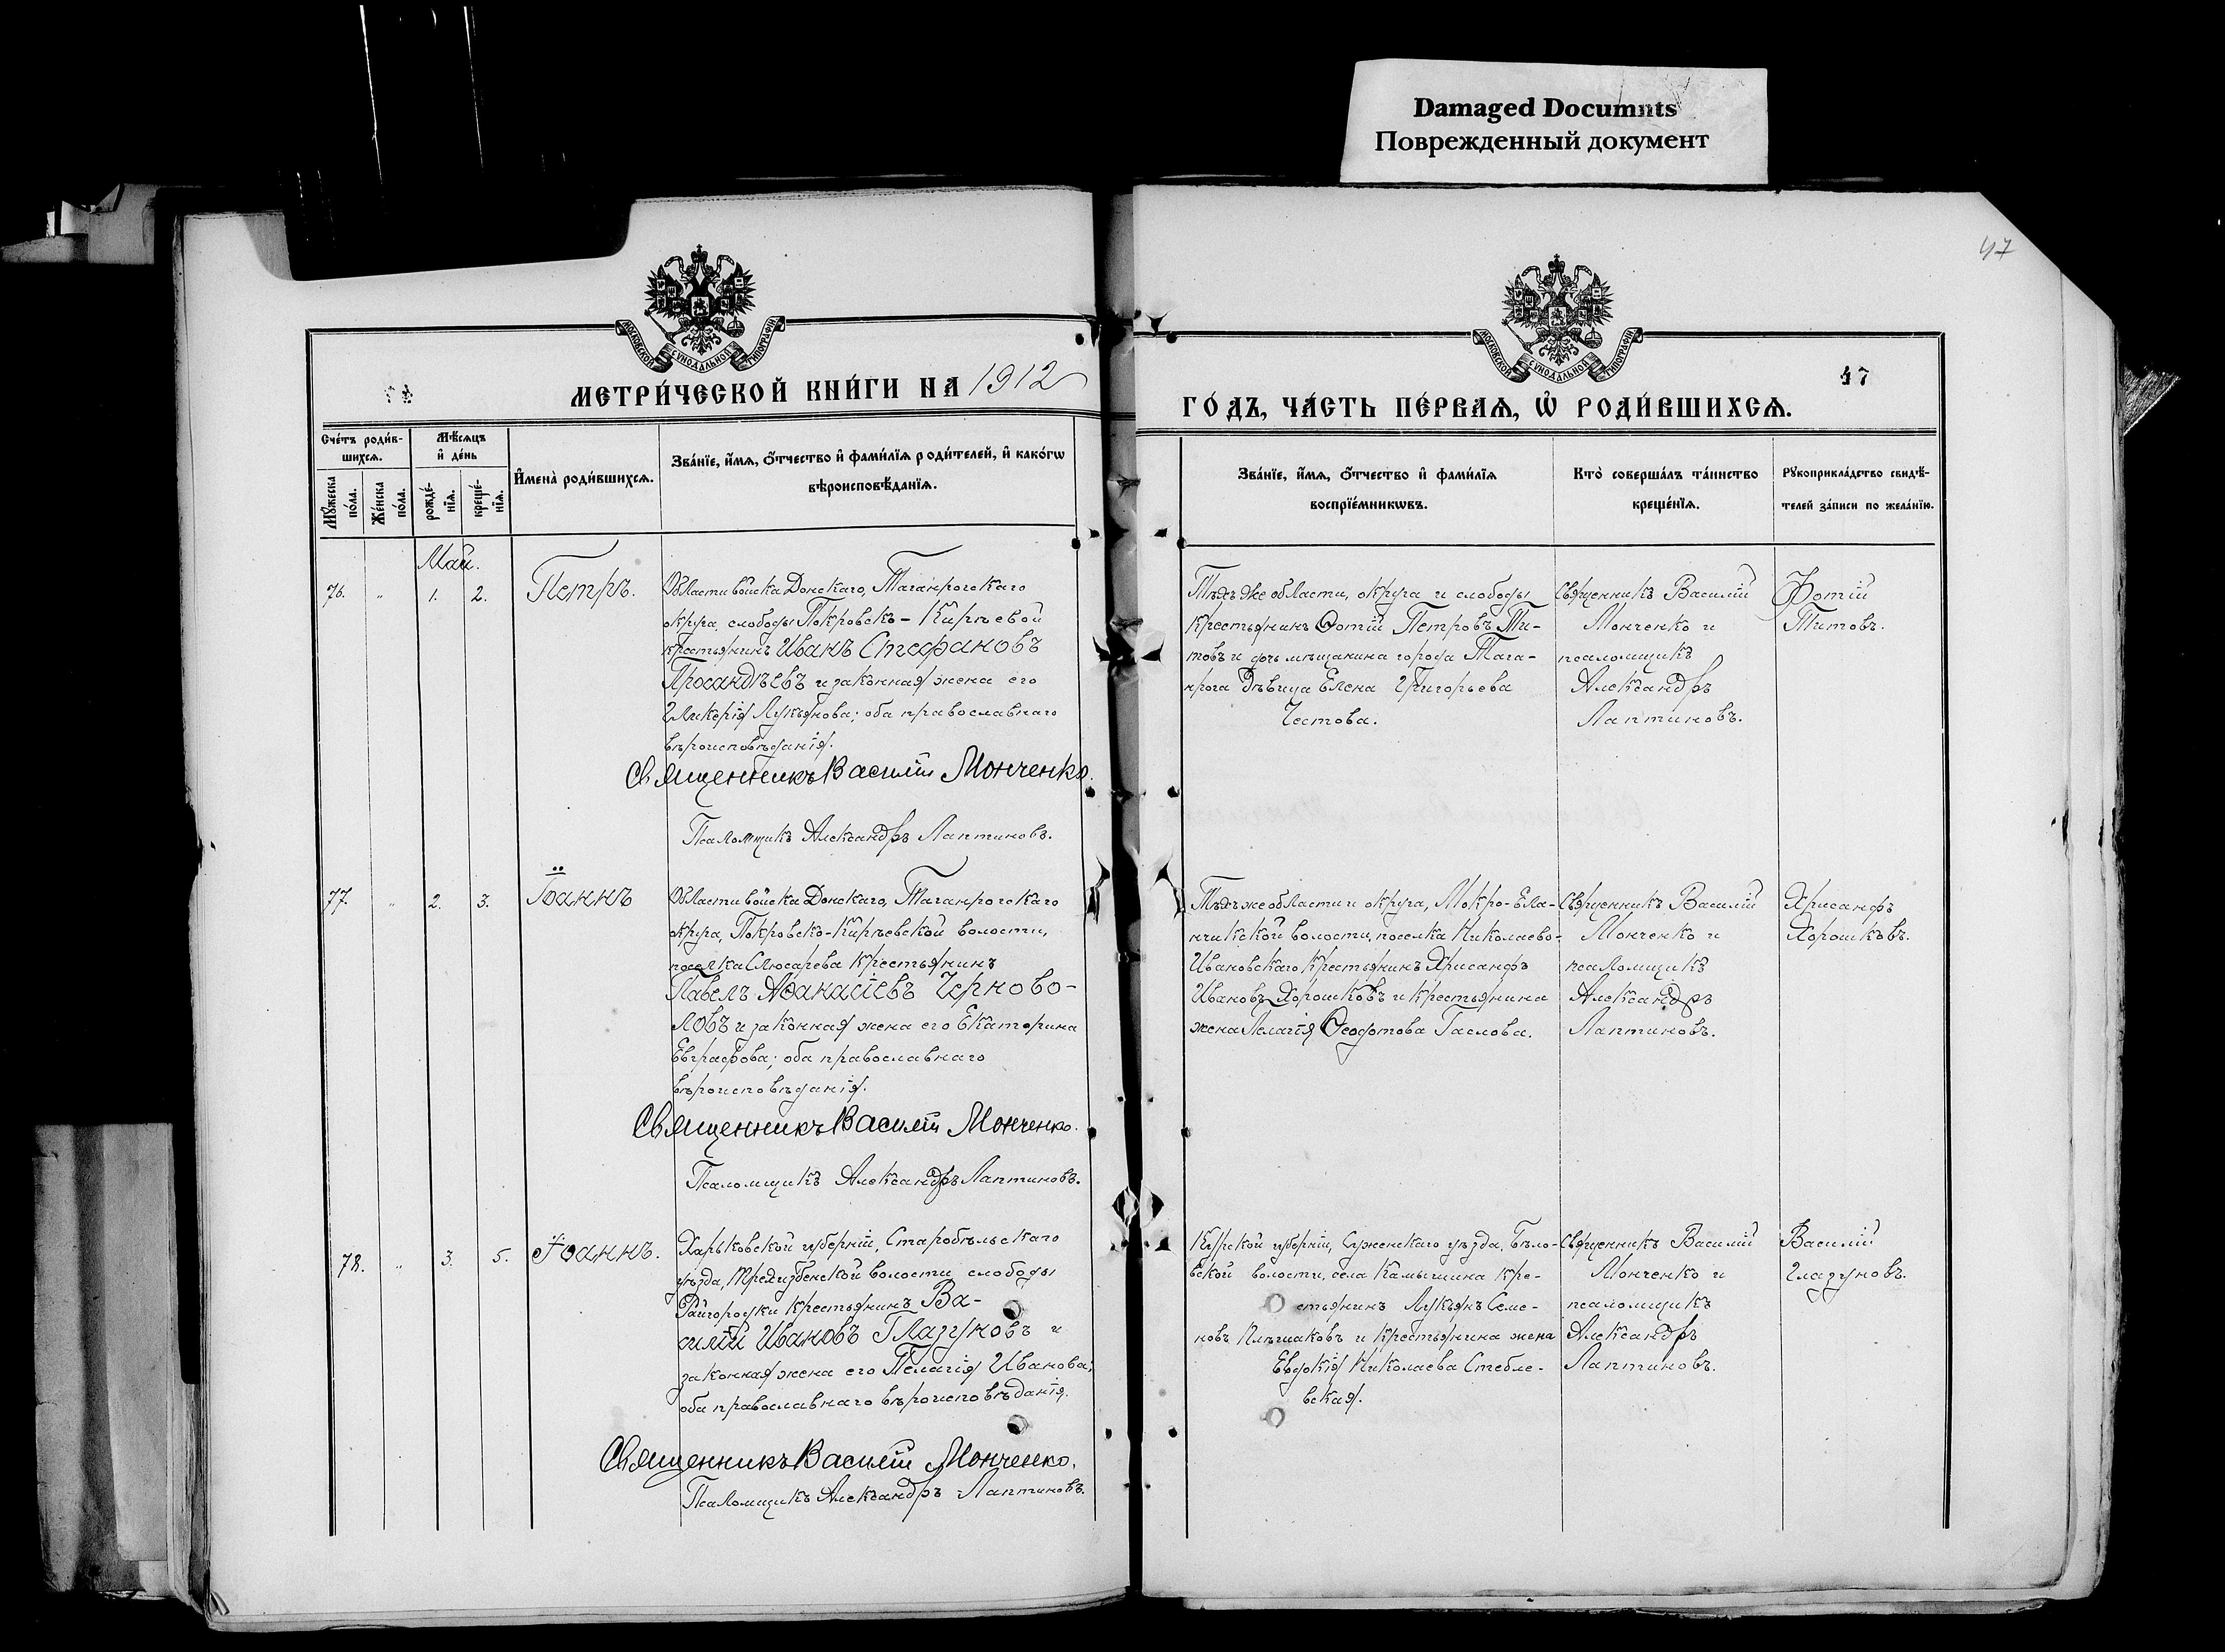 Damaged Documnts
Поврежденный документ
47
МОСКОВСКОЙ СУНОДАЛЬНОЙ ТИПОГРАФІИ
МОСКОВСКОЙ СУНОДАЛЬНОЙ ТИПОГРАФІИ
МЕТРИ́ЧЕСКОЙ КНИ́ГИ НА 1912
ГО́ДЪ, ЧА́СТЬ ПЕ́РВАѦ, Ѡ҆ РОДИ́ВШИХСѦ.
47
Сче́тъ роди́в-
шихсѧ.
Мꙋ́жеска по́ла.
Же́нска по́ла.
Мѣ́сѧцъ
и҆ де́нь
рожде́-нїѧ.
креще́-нїѧ.
И҆мена̀ роди́вшихсѧ.
Зва́нїе, и҆́мѧ, ѻ҆́тчество и҆ фами́лїѧ роди́телей, и҆ како́гѡ
вѣроисповѣ́данїѧ.
Зва́нїе, и҆́мѧ, ѻ҆́тчество и҆ фами́лїѧ
воспрїе́мникѡвъ.
Кто̀ соверша́лъ та́инство
креще́нїѧ.
Рꙋкоприкла́дство свидѣ́-
телей за́писи по жела́нїю.
Май.
76. " 1. 2. Петръ.
Области войска Донскаго, Таганрогскаго
округа, слободы Покровско-Кирѣевой
крестьянинъ Иванъ Стефановъ
Просандѣевъ и законная жена его
Гликерія Лукьянова; оба православнаго
вѣроисповѣданія.
Священникъ Василій Монченко.
Псаломщикъ Александръ Лаптиновъ.
Тѣхъ же области, округа и слободы
крестьянинъ Фотій Петровъ Ти-
товъ и дочь мѣщанина города Тага-
нрога дѣвица Елена Григорьева
Честова.
Священникъ Василій
Монченко и
псаломщикъ
Александръ
Лаптиновъ.
Фотій
Титовъ.
77. " 2. 3. Іоаннъ
Области войска Донскаго, Таганрогскаго
округа, Покровско-Кирѣевской волости,
поселка Слюсарева крестьянинъ
Павелъ Аѳанасіевъ Черново-
ловъ и законная жена его Екатерина
Евграфова; оба православнаго
вѣроисповѣданія.
Священникъ Василій Монченко.
Псаломщикъ Александръ Лаптиновъ.
Тѣхъ же области и округа, Мокро-Ела-
нчикской волости, поселка Николаево-
Ивановскаго крестьянинъ Хрисанфъ
Ивановъ Хорошковъ и крестьянина
жена Пелагія Ѳеодотова
Священникъ Василій
Монченко и
псаломщикъ
Александръ
Лаптиновъ.
Хрисанфъ
Хорошковъ.
78. " 3. 5. Іоаннъ.
Харьковской губерніи, Старобѣльскаго
уѣзда, Трехизбенской волости слободы
Райгородки крестьянинъ Ва-
силій Ивановъ Глазуновъ и
законная жена его Пелагія Иванова;
оба православнаго вѣроисповѣданія.
Священникъ Василій Монченко.
Псаломщикъ Александръ Лаптиновъ.
Курской губерніи, Суженскаго уѣзда, Бѣло-
вской волости, села Камышина кре-
стьянинъ Лукьянъ Семе-
новъ и крестьянина жена
Евдокія Николаева Стебле-
вская.
Священникъ Василій
Монченко и
псаломщикъ
Александръ
Лаптиновъ.
Василій
Глазуновъ.